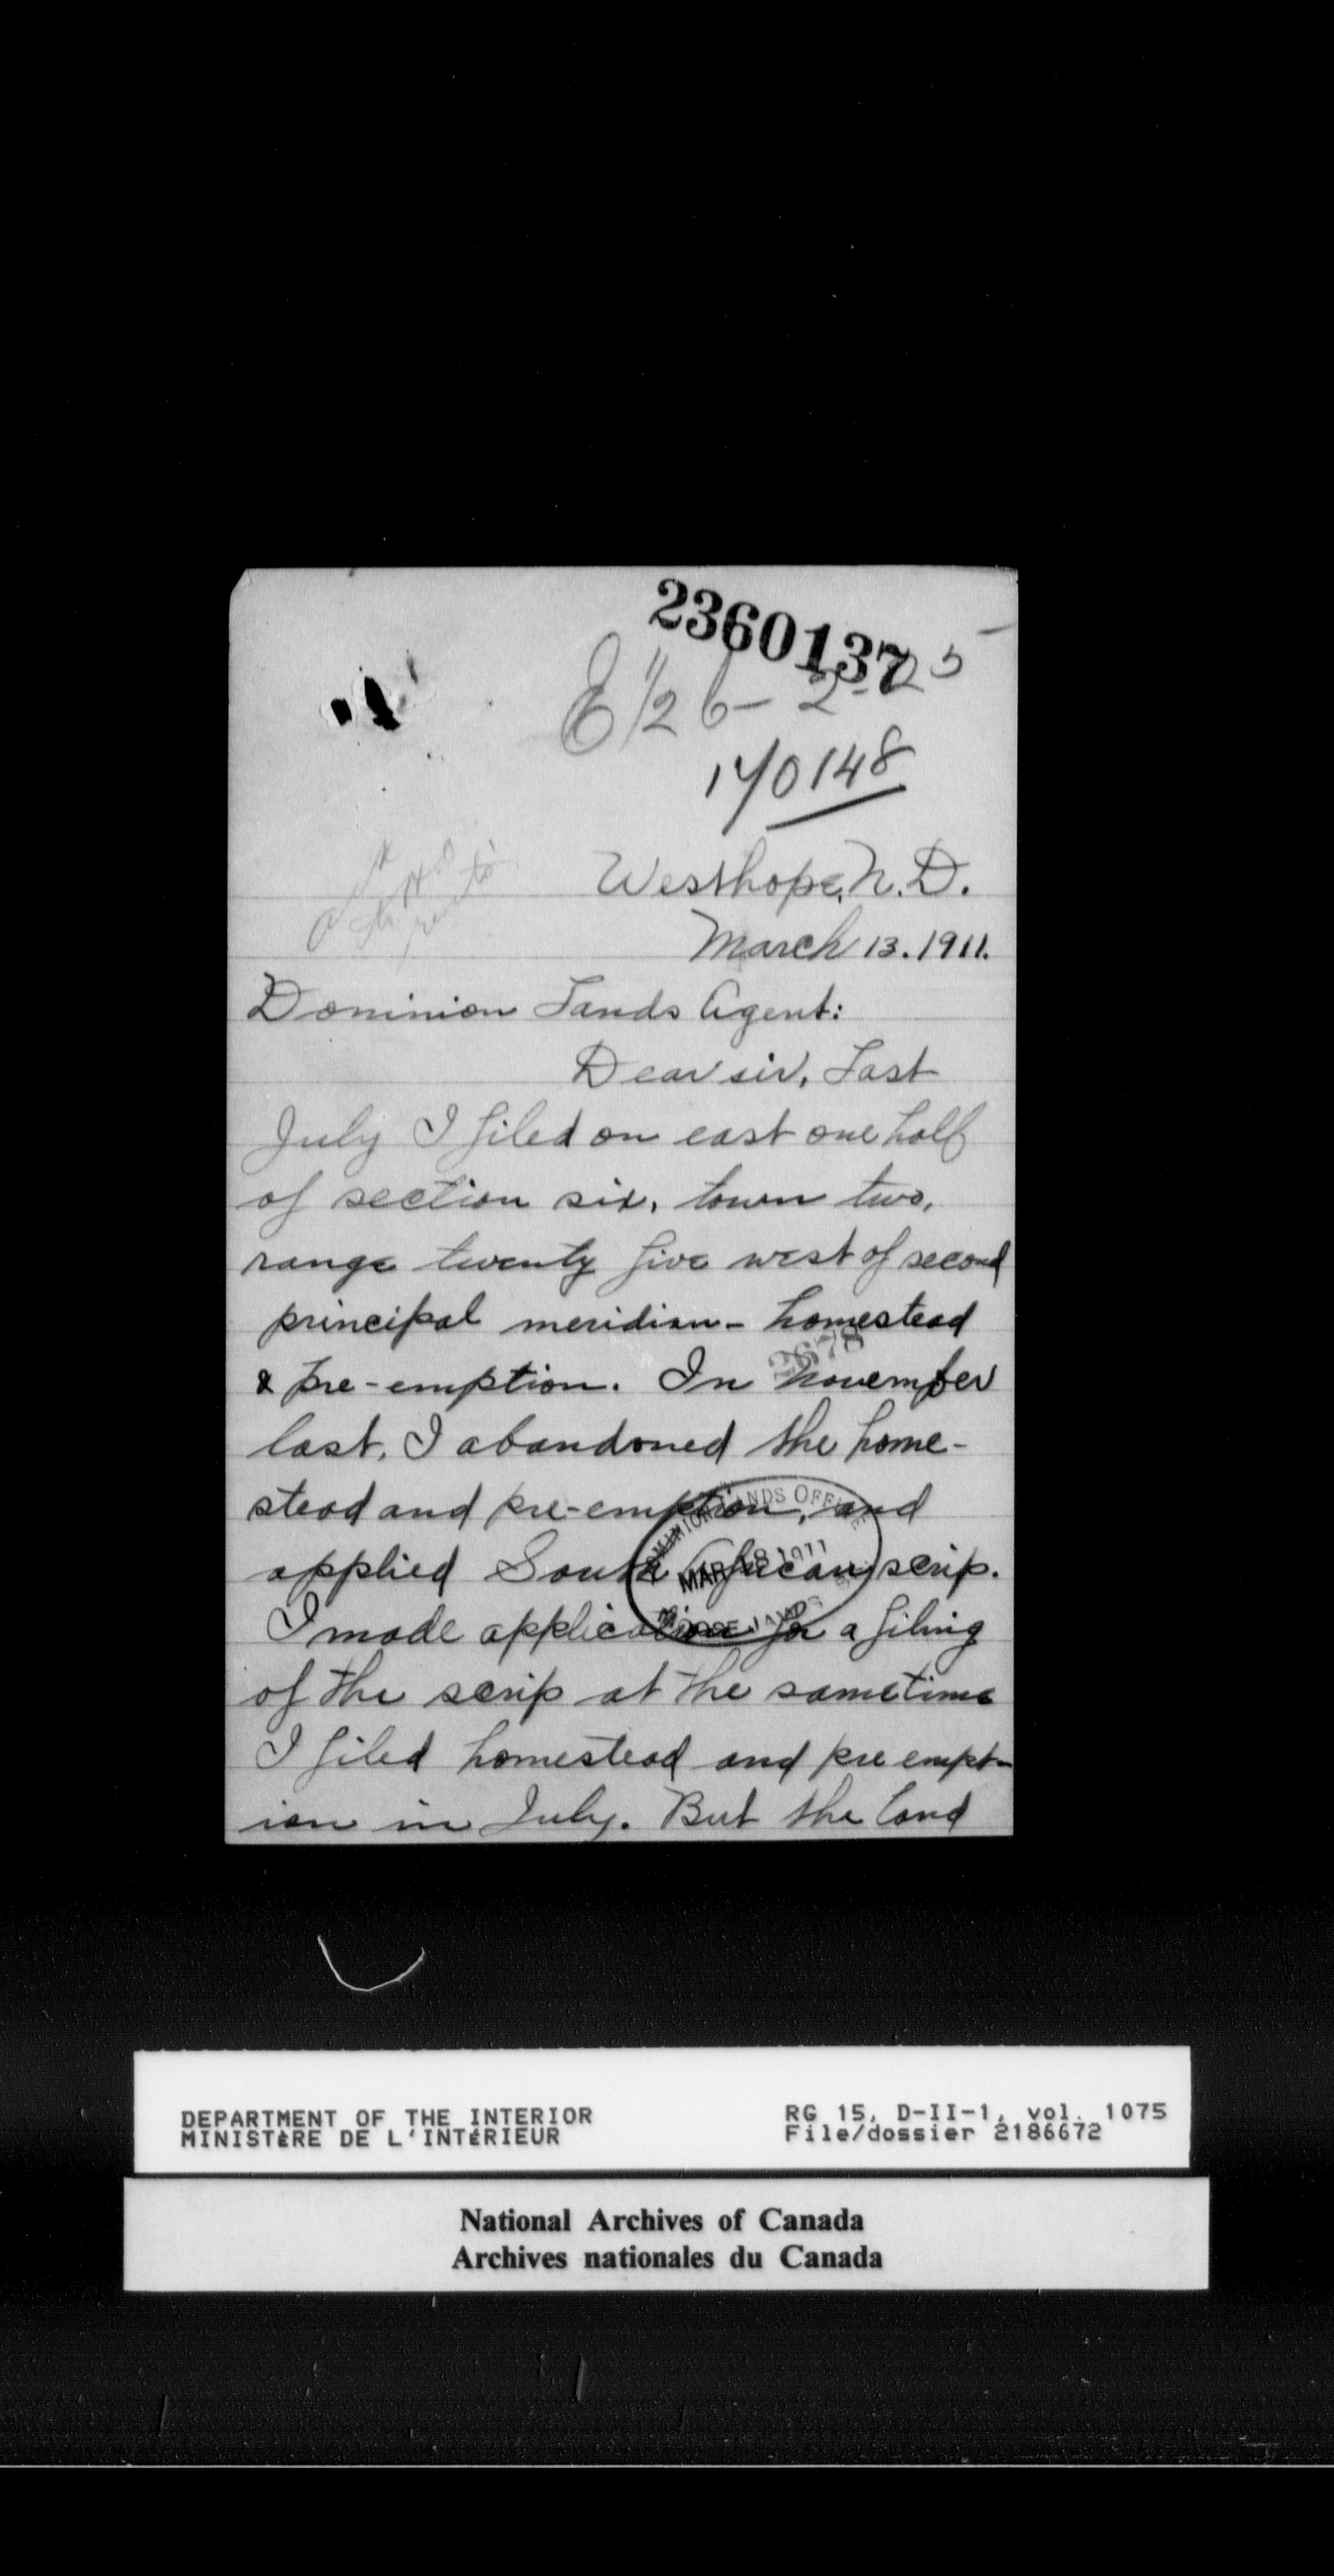 2360137
E 1/2 6 - 2 - 25
170148
Westhope, N. D.
March 13. 1911.
Dominion Lands Agent:
Dear sir, Last
July I filed on east one half
of section six, town two,
range twenty five west of second
principal meridian - homestead
2678
& pre-emption. In November
last, I abandoned the home-
stead and pre-emption, and
applied South African scrip.
DOMINION LANDS OFFICE
MAR 18 1911
MOOSE JAW
I made application for a filing
of the scrip at the sametime
I filed homestead and pre empt-
ion in July. But the land
DEPARTMENT OF THE INTERIOR
MINISTÈRE DE L'INTÉRIEUR
RG 15, D-II-1, vol. 1075
File/dossier 2186672
National Archives of Canada
Archives nationales du Canada